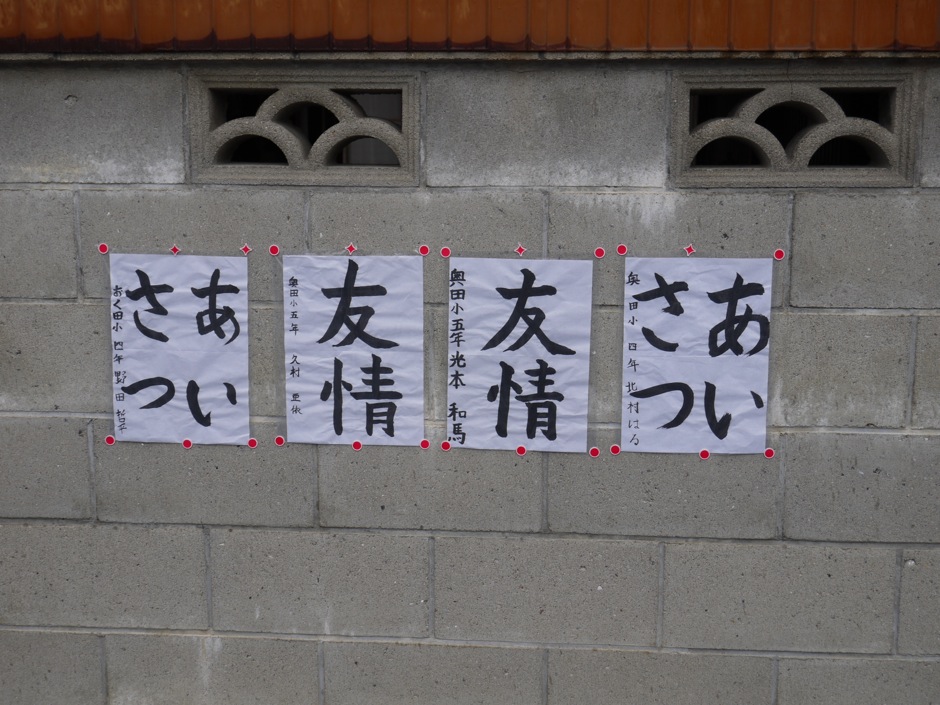 あい
さつ
奥田小四年 北村はる
友情
奥田小五年 光本 和馬
友情
奥田小五年 久村 亜依
あい
さつ
おく田小四年 野田